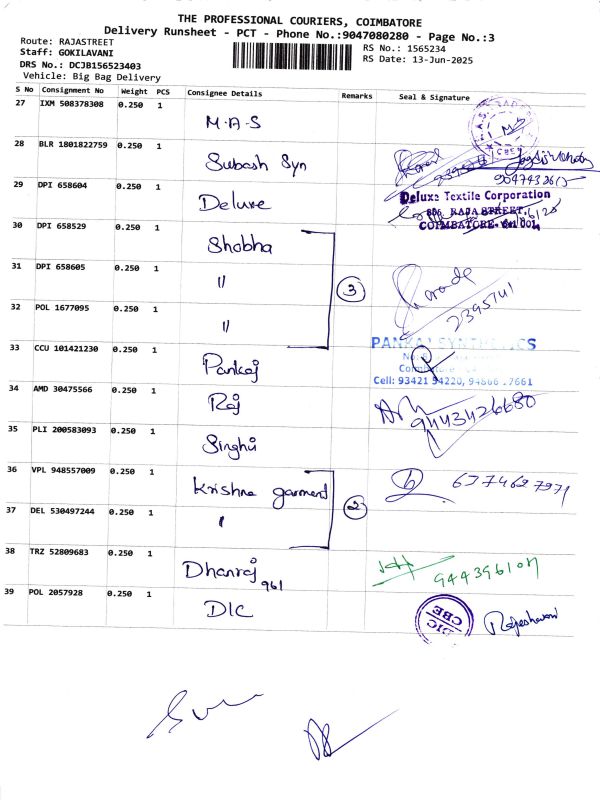 THE PROFESSIONAL COURIERS, COIMBATORE
Delivery Runsheet - PCT - Phone No.:9047080280 - Page No.:3
Route: RAJASTREET
Staff: GOKILAVANI
DRS No.: DCJB156523403
Vehicle: Big Bag Delivery
RS No.: 1565234
RS Date: 13-Jun-2025
S No Consignment No Weight PCS Consignee Details Remarks Seal & Signature
27 IXM 508378308 0.250 1 M.A.S
28 BLR 1801822759 0.250 1 Subash Syn
29 DPI 658604 0.250 1 Deluxe
Deluxe Textile Corporation
RAJA STREET,
COIMBATORE- 641 001.
30 DPI 658529 0.250 1 Shobha
31 DPI 658605 0.250 1 "
3
2395141
32 POL 1677095 0.250 1 "
33 CCU 101421230 0.250 1 Pankaj
PANKAJ SYNTHETICS
Cell: 93421 94220, 94866 .7661
34 AMD 30475566 0.250 1 Raj
9443426680
35 PLI 200583093 0.250 1 Singhvi
36 VPL 948557009 0.250 1 Krishna garment
6374627971
37 DEL 530497244 0.250 1 "
2
38 TRZ 52809683 0.250 1 Dhanraj 961
39 POL 2057928 0.250 1 DIC
DIC
CBE
Rajeshwari